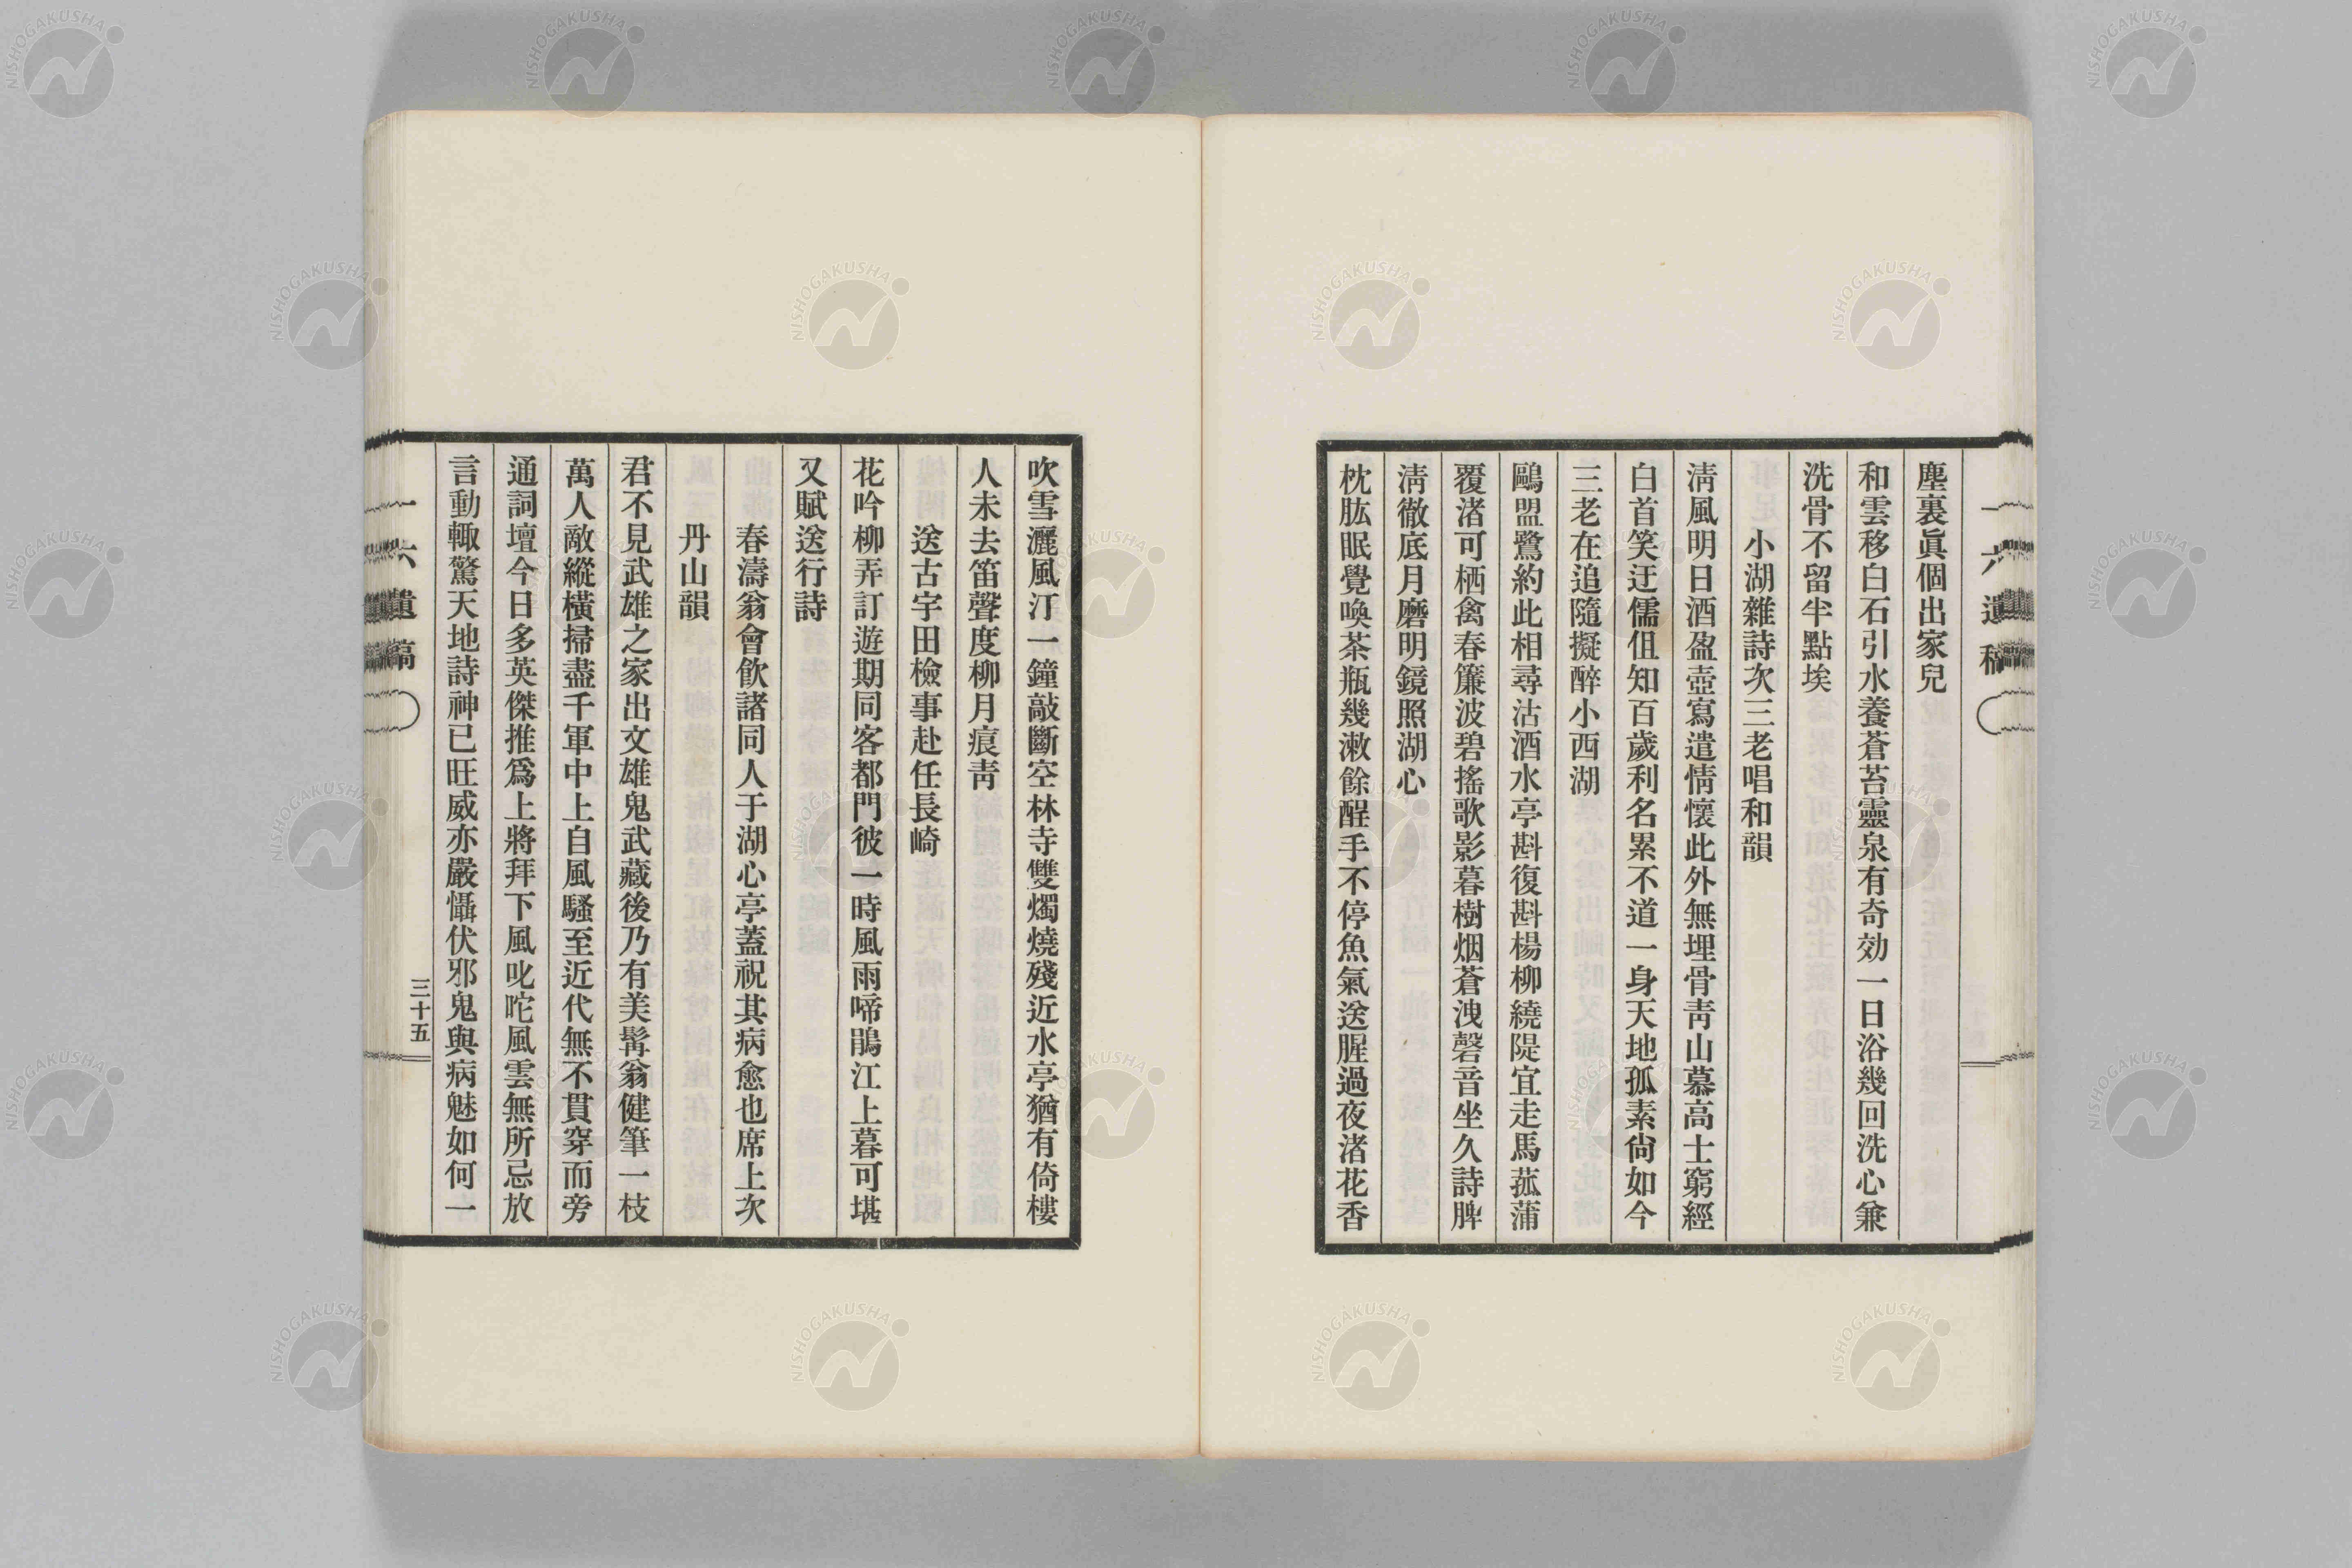 塵裏眞個出家兒
和雲移白石引水養蒼苔靈泉有奇効一日浴幾回洗心兼
洗骨不留半點埃
小湖雜詩次三老唱和韻
淸風明日酒盈壺寫遣情懷此外無埋骨靑山慕高士窮經
白首笑迂儒伹知百歲利名累不道一身天地孤素尙如今
三老在追隨擬醉小西湖
鷗盟鷺約此相尋沽酒水亭斟復斟楊柳繞隄宜走馬菰蒲
覆渚可栖禽春簾波碧搖歌影暮樹烟蒼洩磬音坐久詩脾
淸徹底月磨明鏡照湖心
枕肱眠覺喚茶瓶幾漱餘酲手不停魚氣送腥過夜渚花香
吹雪灑風汀一鐘敲斷空林寺雙燭燒殘近水亭猶有倚樓
人未去笛聲度柳月痕靑
送古宇田檢事赴任長崎
花吟柳弄訂遊期同客都門彼一時風雨啼鵑江上暮可堪
又賦送行詩
春濤翁會飮諸同人于湖心亭蓋祝其病愈也席上次
丹山韻
君不見武雄之家出文雄鬼武藏後乃有美髯翁健筆一枝
萬人敵縱橫掃盡千軍中上自風騷至近代無不貫穿而旁
通詞壇今日多英傑推爲上將拜下風叱咤風雲無所忌放
言動輙驚天地詩神已旺威亦嚴懾伏邪鬼與病魅如何一
一六遺稿
三十五
一六遺稿
NISHOGAKUSHA